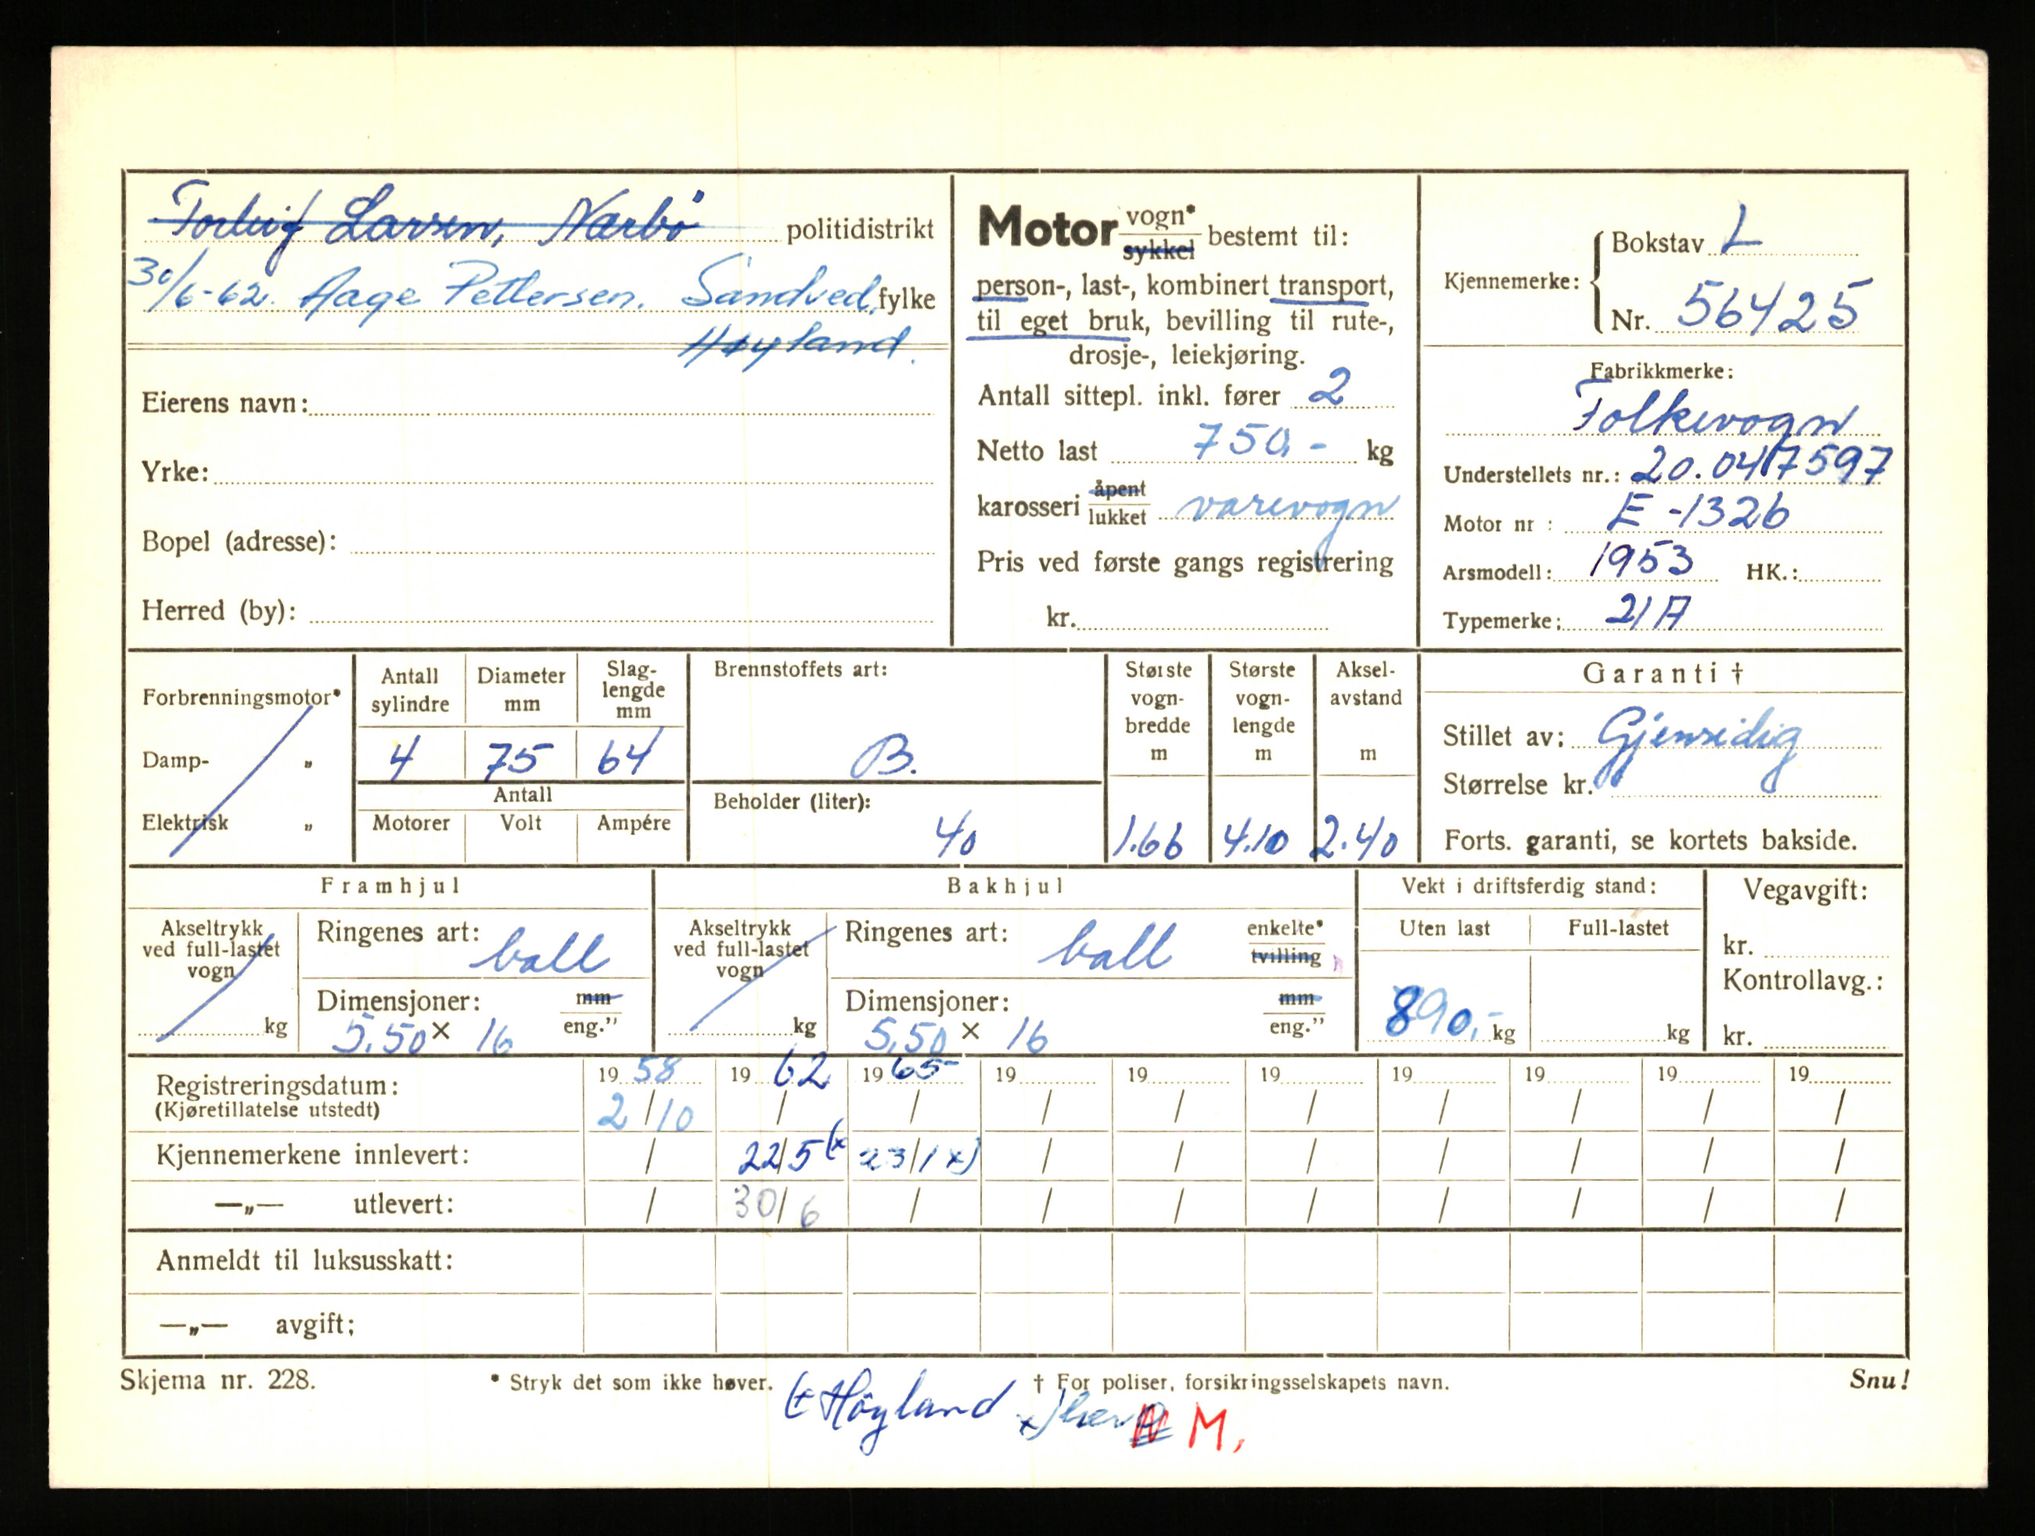 Torleif Larsen, Nærbö politidistrikt
30/6-62. Aage Pettersen. Sandved, fylke
Høyland.
Eierens navn:
Yrke:
Bopel (adresse):
Herred (by):
Motor vogn* sykkel bestemt til:
person-, last-, kombinert transport,
til eget bruk, bevilling til rute-,
drosje-, leiekjøring.
Antall sittepl. inkl. fører 2
Netto last 750,- kg
karosseri åpent lukket varevogn
Pris ved første gangs registrering
kr.
Kjennemerke:
Bokstav L
Nr. 56425
Fabrikkmerke:
Folkevogn
Understellets nr.: 20.047597
Motor nr : E-1326
Arsmodell: 1953 HK.:
Typemerke: 21A
Forbrenningsmotor*
Damp- „
Elektrisk „
Antall sylindre
Diameter mm
Slag-lengde mm
4 75 64
Antall
Motorer Volt Ampére
Brennstoffets art:
B.
Beholder (liter):
40
Største vogn-bredde m
1.66
Største vogn-lengde m
4.10
Aksel-avstand m
2.40
Garanti †
Stillet av: Gjensidig
Størrelse kr.
Forts. garanti, se kortets bakside.
Framhjul
Akseltrykk ved full-lastet vogn
kg
Ringenes art: ball
Dimensjoner: mm eng."
5,50 × 16
Bakhjul
Akseltrykk ved full-lastet vogn
kg
Ringenes art: ball enkelte* tvilling
Dimensjoner: mm eng."
5,50 × 16
Vekt i driftsferdig stand:
Uten last Full-lastet
890,- kg kg
Vegavgift:
kr.
Kontrollavg.:
kr.
Registreringsdatum: 1958 1962 1965 19 19 19 19 19 19 19
(Kjøretillatelse utstedt) 2/10 / / / / / / / / /
Kjennemerkene innlevert: / 22/5 (x 23/1 x) / / / / / / /
—„— utlevert: / 30/6 / / / / / / / /
Anmeldt til luksusskatt:
—„— avgift;
Skjema nr. 228. * Stryk det som ikke høver. † For poliser, forsikringsselskapets navn. Snu!
Höyland x) M,